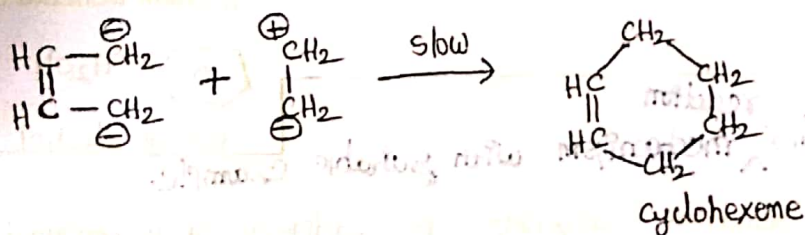 HC — CH₂ ⊖
||
HC — CH₂ ⊖
+
⊕ CH₂
|
CH₂ ⊖
slow
CH₂
HC
CH₂
||
CH₂
HC
CH₂
cyclohexene